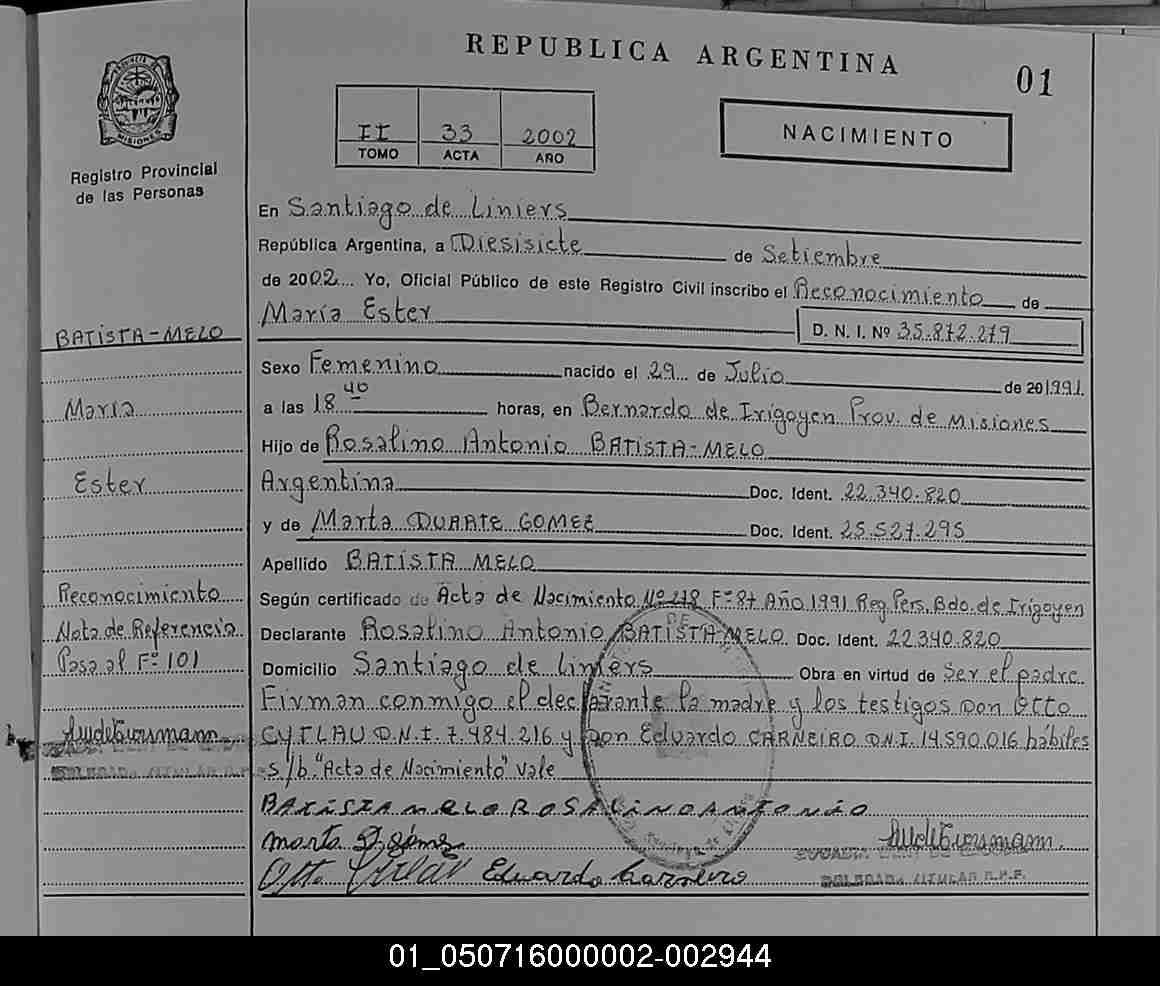 REPUBLICA ARGENTINA
01
PROVINCIA DE MISIONES
Registro Provincial
de las Personas
II 33 2002
TOMO ACTA AÑO
NACIMIENTO
En Santiago de Liniers
República Argentina, a Diesisiete de Setiembre
de 2002 Yo, Oficial Público de este Registro Civil inscribo el Reconocimiento de
María Ester
D. N. I. Nº 35.872.279
BATISTA-MELO
Sexo Femenino nacido el 29 de Julio de 201991
María
a las 18 40 horas, en Bernardo de Irigoyen Prov. de Misiones
Hijo de Rosalino Antonio BATISTA-MELO
Ester
Argentina Doc. Ident. 22.340.820
y de Marta DUARTE GOMEZ Doc. Ident. 25.527.295
Apellido BATISTA MELO
Reconocimiento
Según certificado de Acta de Nacimiento Nº 278 Fº 87 Año 1991 Reg. Pers. Bdo. de Irigoyen
Nota de Referencia
Declarante Rosalino Antonio BATISTA-MELO Doc. Ident. 22.340.820
Pasa al Fº 101
Domicilio Santiago de Liniers Obra en virtud de Ser el padre
Firman conmigo el declarante la madre y los testigos Don Otto
CYTLAU D.N.I. 7.484.216 y Don Eduardo CARNEIRO D.N.I. 14.590.016 hábiles
s/b. "Acta de Nacimiento" Vale
BATISTA MELO ROSALINO ANTONIO
Marta D. Gómez
Otto Eduardo Carneiro
01_050716000002-002944